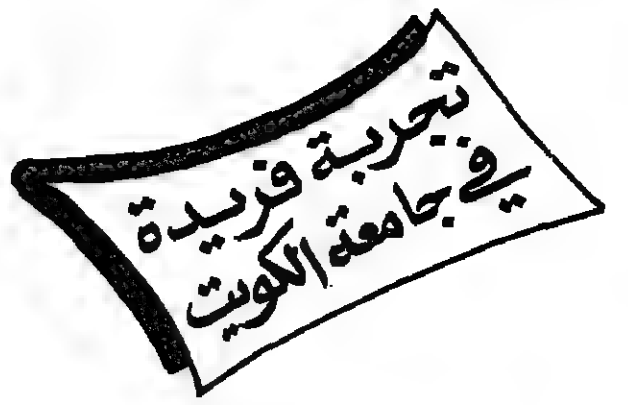 تجربة فريدة
في جامعة الكويت